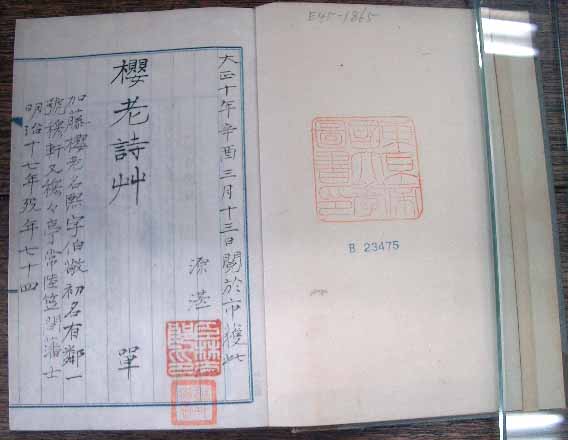 E45-1865
東京帝國大學圖書印
B 23475
大正十年辛酉三月十三日閲於市獲此
櫻老詩艸 單
加藤櫻老名熙字伯敬初名有鄰一
號軒又亭常陸笠間藩士
明治十七年歿年七十四